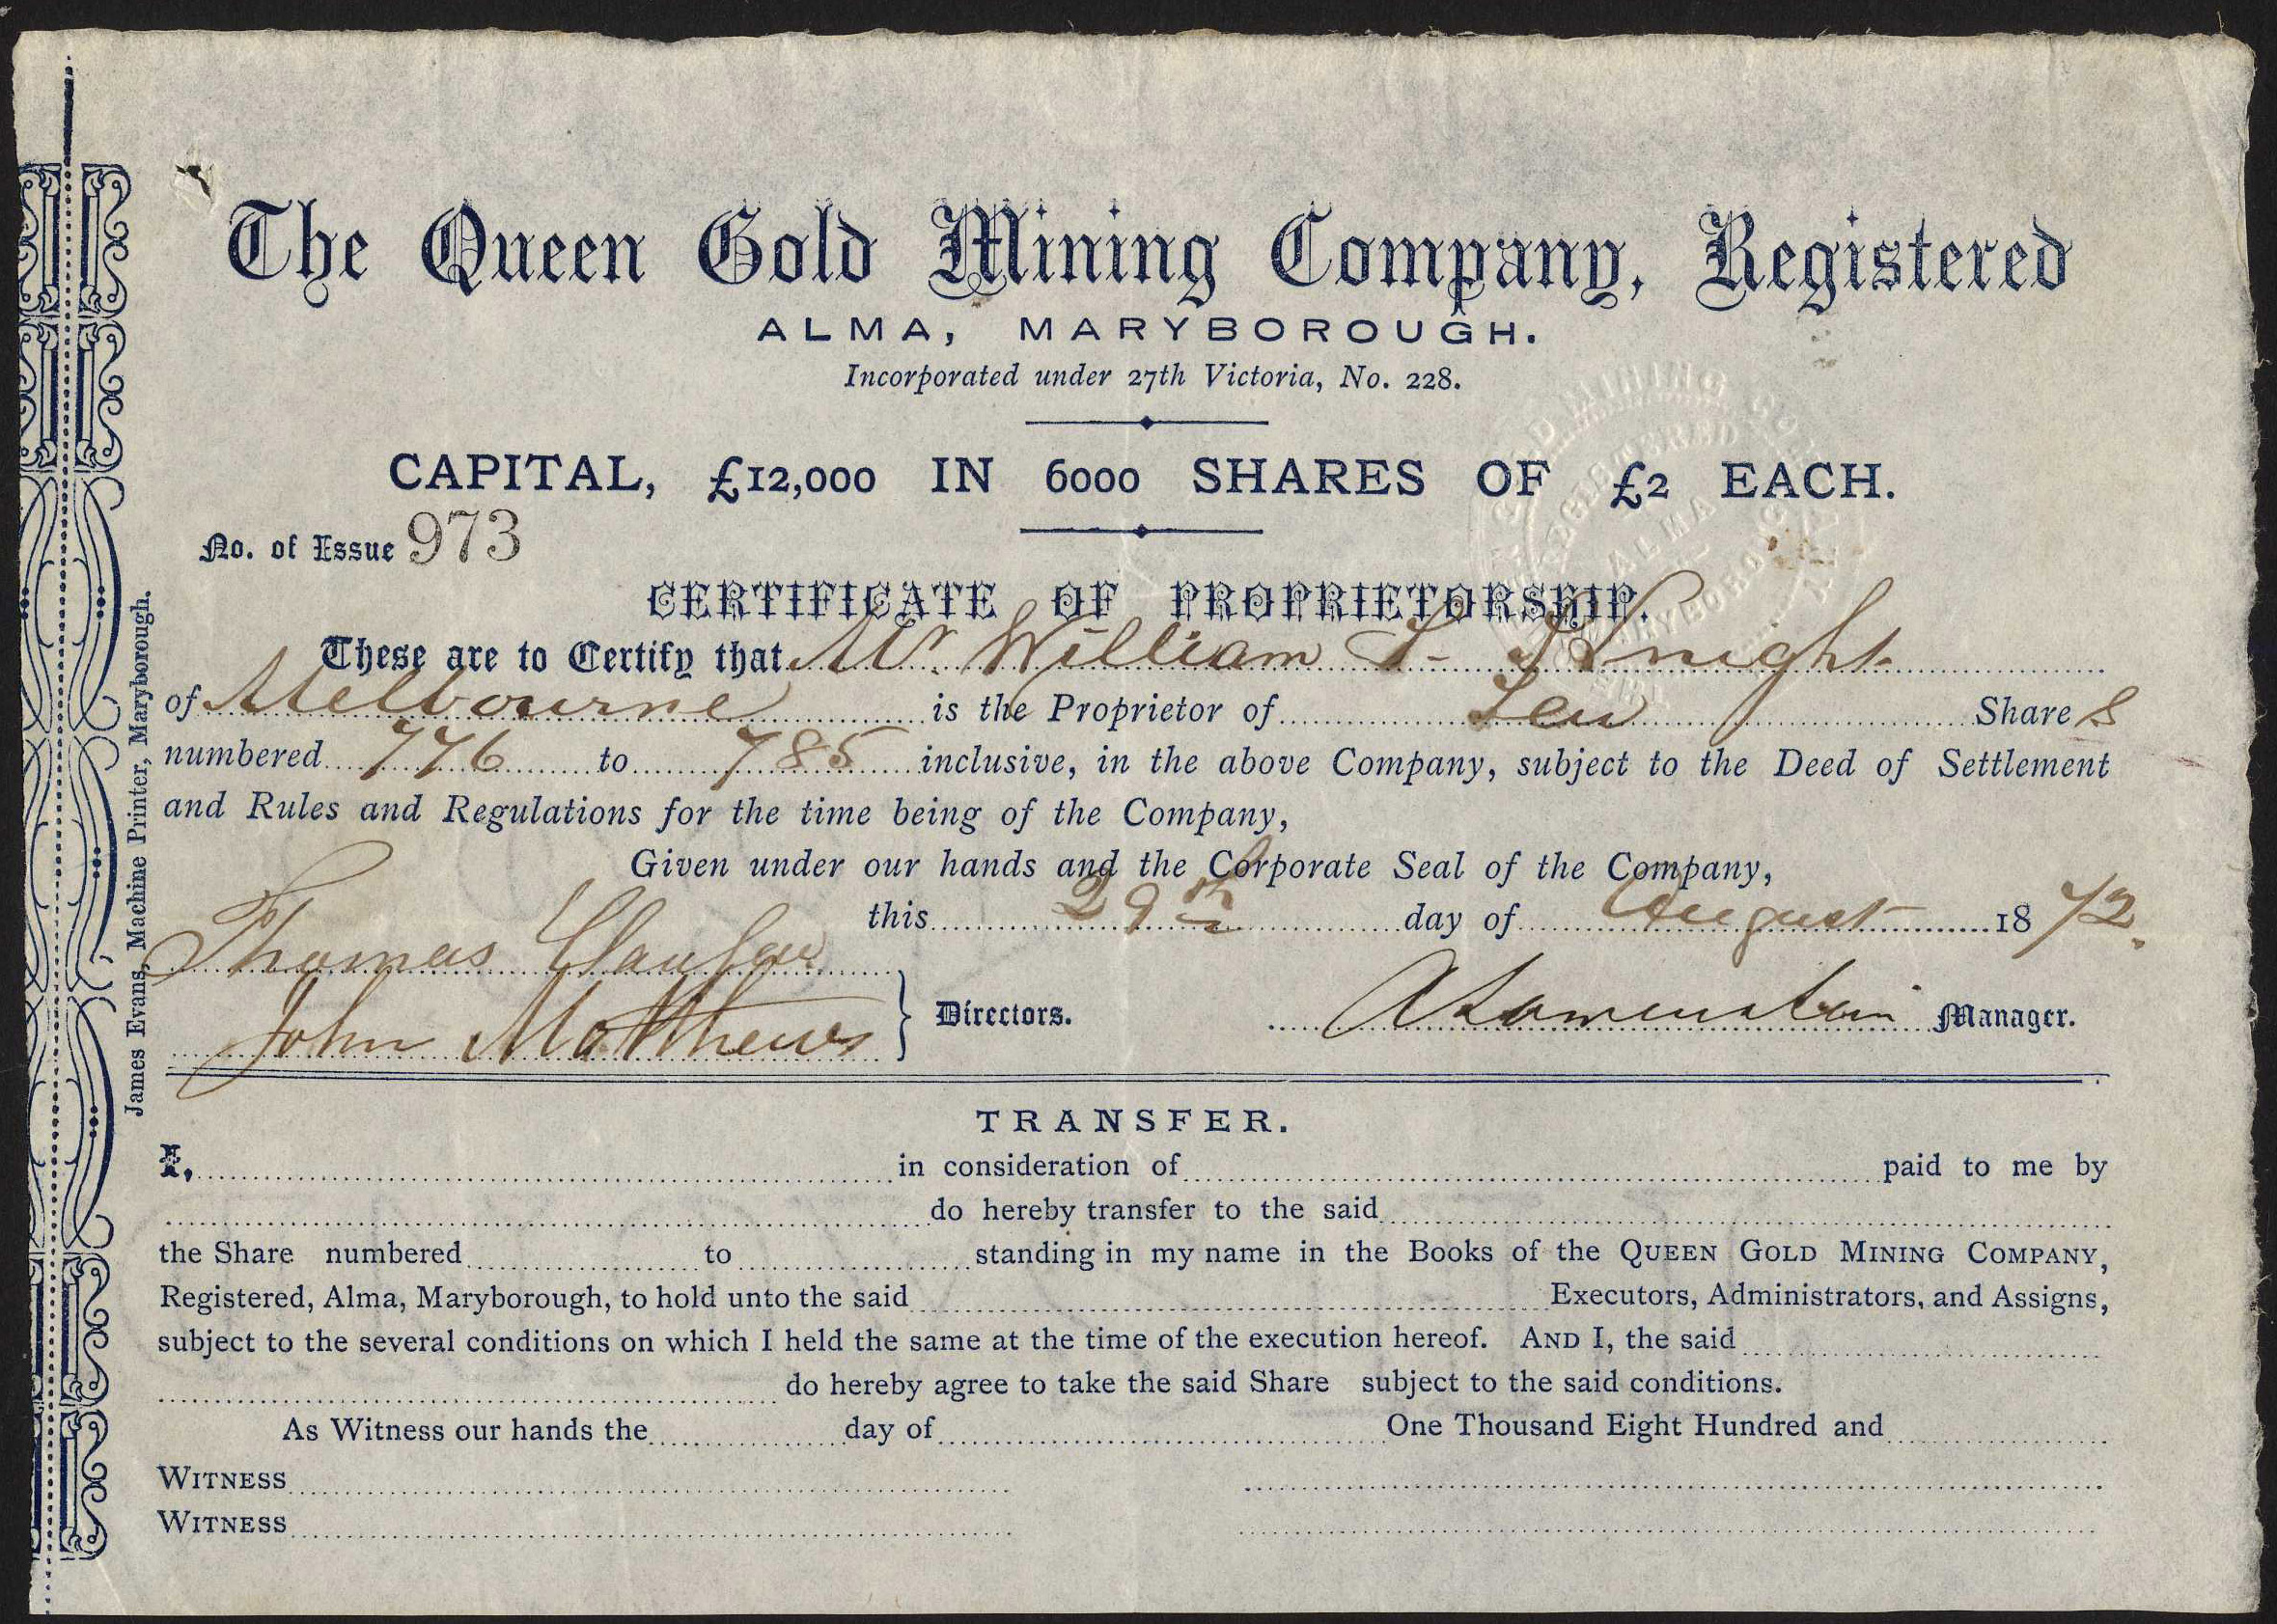 The Queen Gold Mining Company, Registered
ALMA, MARYBOROUGH.
Incorporated under 27th Victoria, No. 228.
CAPITAL, £12,000 IN 6000 SHARES OF £2 EACH.
No. of Issue 973
CERTIFICATE OF PROPRIETORSHIP.
These are to Certify that Mr. William Knight
of Melbourne is the Proprietor of Ten Shares
numbered 776 to 785 inclusive, in the above Company, subject to the Deed of Settlement
and Rules and Regulations for the time being of the Company,
Given under our hands and the Corporate Seal of the Company,
this 29th day of August 1872.
Thomas
John Matthews
Directors.
Manager.
James Evans, Machine Printer, Maryborough.
GOLD MINING CO
REGISTERED
ALMA
MARYBOROUGH
TRANSFER.
I, in consideration of paid to me by
do hereby transfer to the said
the Share numbered to standing in my name in the Books of the QUEEN GOLD MINING COMPANY,
Registered, Alma, Maryborough, to hold unto the said Executors, Administrators, and Assigns,
subject to the several conditions on which I held the same at the time of the execution hereof. AND I, the said
do hereby agree to take the said Share subject to the said conditions.
As Witness our hands the day of One Thousand Eight Hundred and
WITNESS
WITNESS